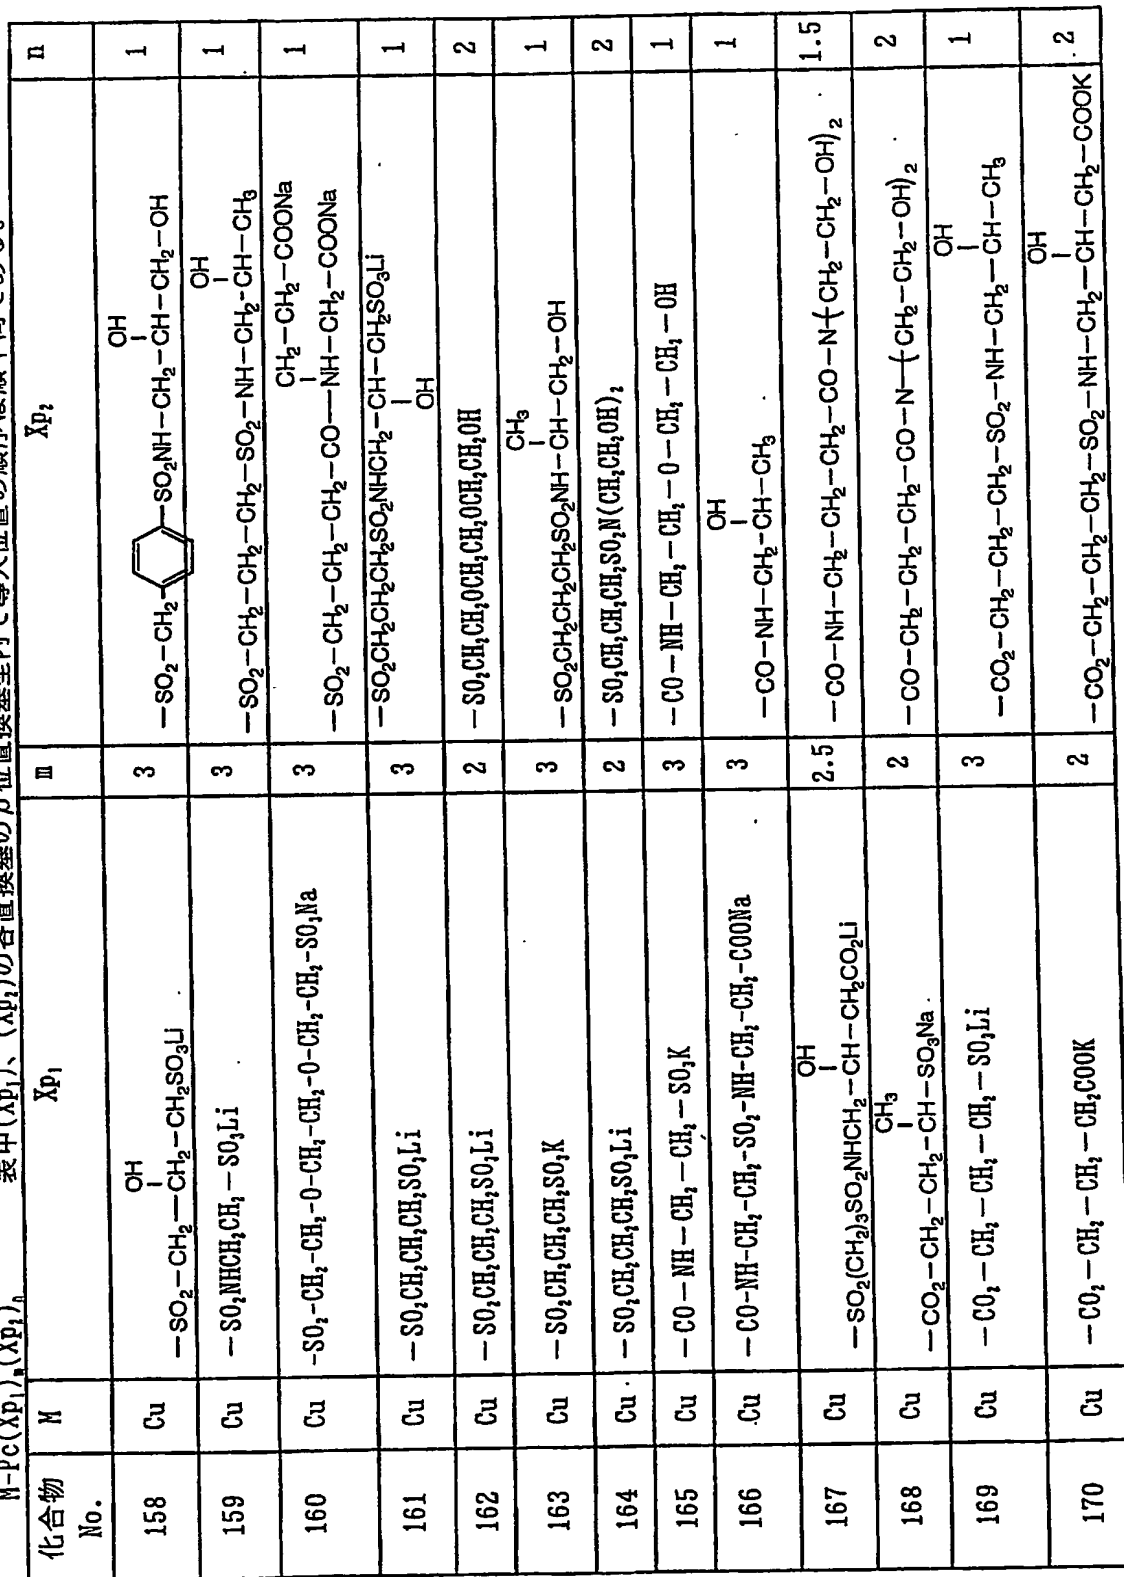 M-Pc(Xp₁)ₘ(Xp₂)ₙ 表中(Xp₁)、(Xp₂)の各置換基のβ位置換基型内で導入位置の順序は順不同である。
化合物 No. M Xp₁ m Xp₂ n
158 Cu —SO₂—CH₂—CH₂(OH)—CH₂SO₃Li 3 —SO₂—CH₂—⌬—SO₂NH—CH₂—CH(OH)—CH₂—OH 1
159 Cu —SO₂NHCH₂CH₂—SO₃Li 3 —SO₂—CH₂—CH₂—CH₂—SO₂—NH—CH₂—CH(OH)—CH₃ 1
160 Cu -SO₂-CH₂-CH₂-O-CH₂-CH₂-O-CH₂-CH₂-SO₃Na 3 —SO₂—CH₂—CH₂—CH₂—CO—NH(CH₂—CH₂—COONa)—CH₂—CH₂—COONa 1
161 Cu —SO₂CH₂CH₂CH₂SO₃Li 3 —SO₂CH₂CH₂CH₂SO₂NHCH₂—CH(OH)—CH₂SO₃Li 1
162 Cu —SO₂CH₂CH₂CH₂SO₃Li 2 —SO₂CH₂CH₂OCH₂CH₂OCH₂CH₂OH 2
163 Cu —SO₂CH₂CH₂CH₂SO₃K 3 —SO₂CH₂CH₂CH₂SO₂NH—CH(CH₃)—CH₂—OH 1
164 Cu —SO₂CH₂CH₂CH₂SO₃Li 2 —SO₂CH₂CH₂CH₂SO₂N(CH₂CH₂OH)₂ 2
165 Cu —CO—NH—CH₂—CH₂—SO₃K 3 —CO—NH—CH₂—CH₂—O—CH₂—CH₂—OH 1
166 Cu —CO-NH-CH₂-CH₂-SO₂-NH-CH₂-CH₂-COONa 3 —CO—NH—CH₂—CH(OH)—CH₃ 1
167 Cu —SO₂(CH₂)₃SO₂NHCH₂—CH(OH)—CH₂CO₂Li 2.5 —CO—NH—CH₂—CH₂—CH₂—CO—N(CH₂—CH₂—OH)₂ 1.5
168 Cu —CO₂—CH₂—CH₂—CH(CH₃)—SO₃Na 2 —CO—CH₂—CH₂—CH₂—CO—N(CH₂—CH₂—OH)₂ 2
169 Cu —CO₂—CH₂—CH₂—CH₂—SO₃Li 3 —CO₂—CH₂—CH₂—CH₂—SO₂—NH—CH₂—CH(OH)—CH₃ 1
170 Cu —CO₂—CH₂—CH₂—CH₂COOK 2 —CO₂—CH₂—CH₂—CH₂—SO₂—NH—CH₂—CH(OH)—CH₂—COOK 2